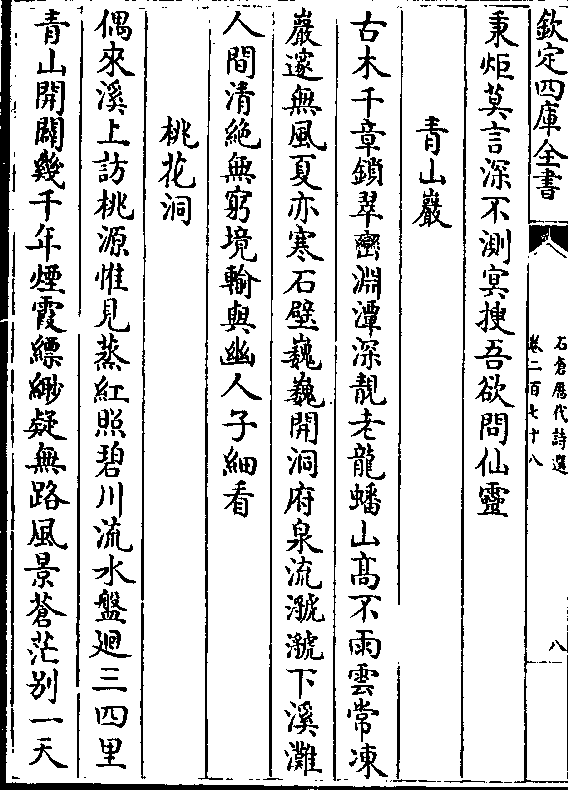 欽定四庫全書
石倉歴代詩選
卷二百七十八
八
秉炬莫言深不測冥搜吾欲問仙靈
青山巖
古木千章鎖翠巒淵潭深靚老龍蟠山髙不雨雲常凍
巖邃無風夏亦寒石壁巍巍開洞府泉流㶁㶁下溪灘
人間清絶無窮境輸與幽人子細看
桃花洞
偶來溪上訪桃源惟見蒸紅照碧川流水盤廻三四里
青山開闢幾千年煙霞縹緲疑無路風景蒼茫别一天